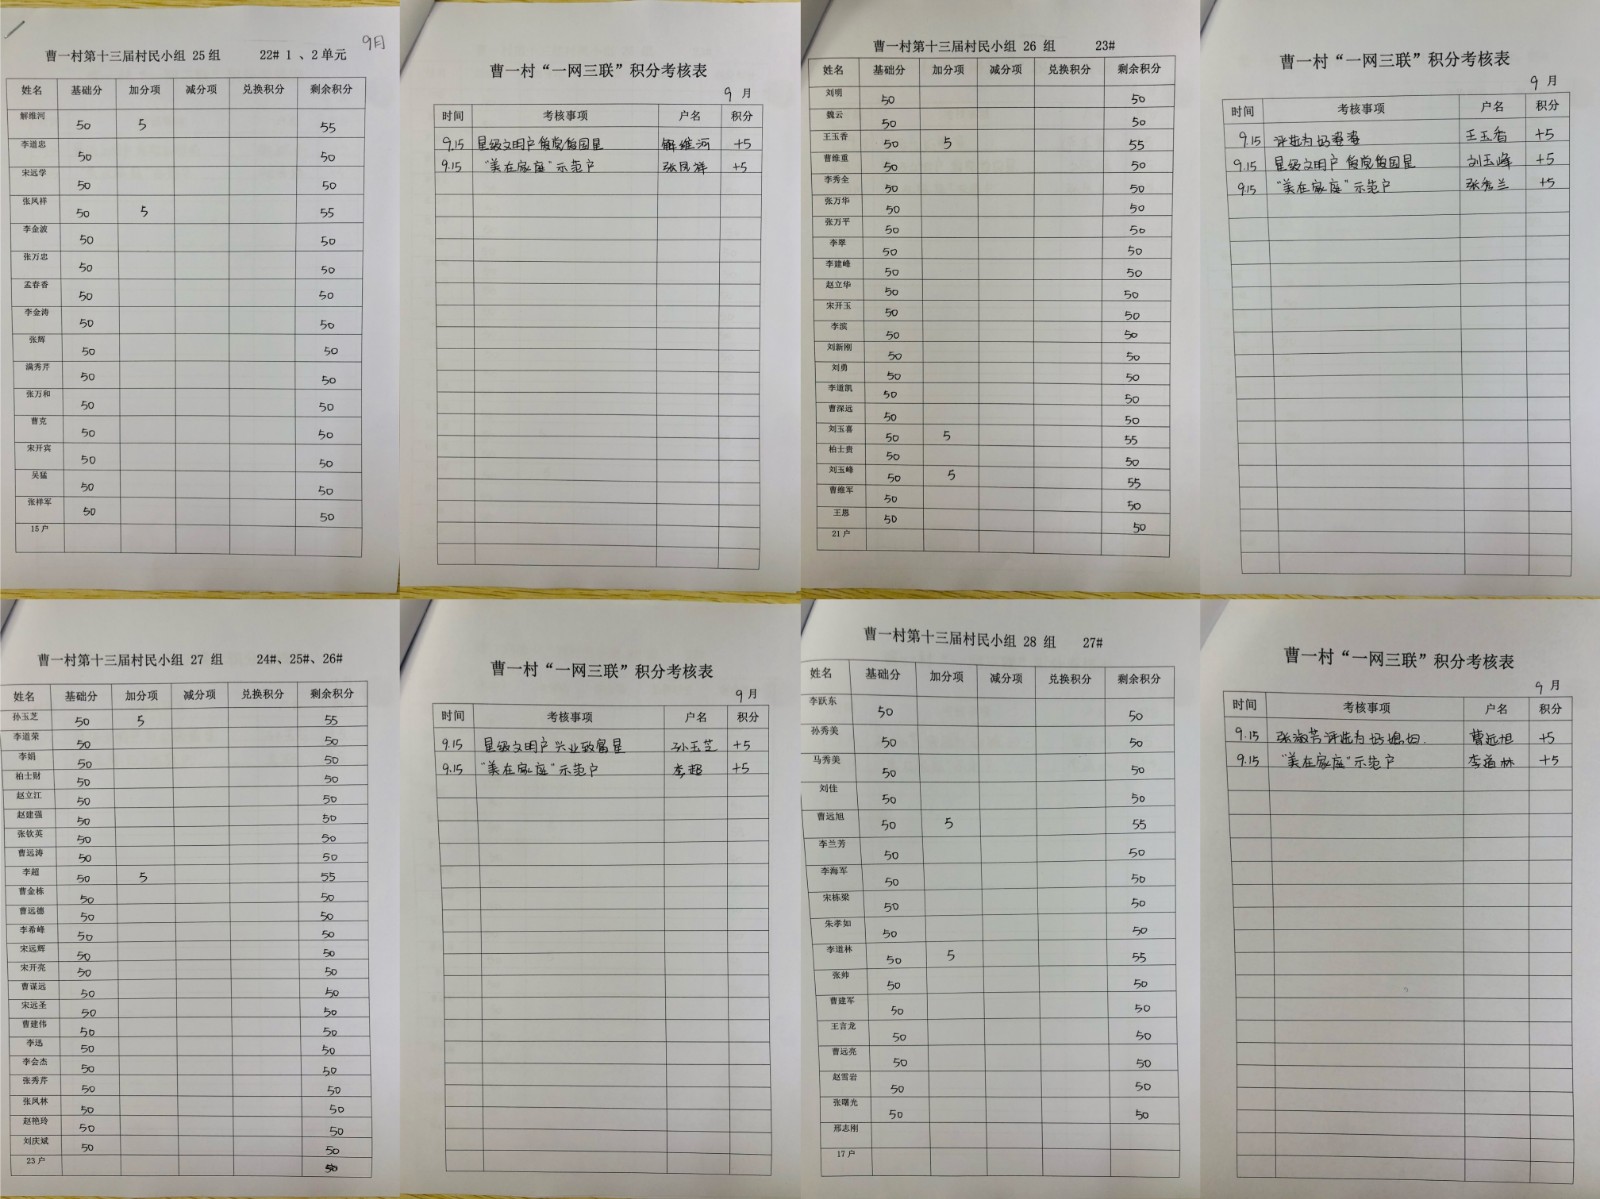 曹一村第十三届村民小组 25 组 22# 1 、2 单元 9月
姓名 基础分 加分项 减分项 兑换积分 剩余积分
解维河 50 5 55
李道忠 50 50
宋远学 50 50
张凤祥 50 5 55
李金波 50 50
张万忠 50 50
孟春香 50 50
李金涛 50 50
张辉 50 50
满秀芹 50 50
张万和 50 50
曹克 50 50
宋开宾 50 50
吴猛 50 50
张祥军 50 50
15 户
曹一村“一网三联”积分考核表
9 月
时间 考核事项 户名 积分
9.15 星级文明户 爱党爱国星 解维河 +5
9.15 “美在家庭”示范户 张凤祥 +5
曹一村第十三届村民小组 26 组 23#
姓名 基础分 加分项 减分项 兑换积分 剩余积分
刘明 50 50
魏云 50 50
王玉香 50 5 55
曹维重 50 50
李秀全 50 50
张万华 50 50
张万平 50 50
李翠 50 50
李建峰 50 50
赵立华 50 50
宋开玉 50 50
李滨 50 50
刘新刚 50 50
刘勇 50 50
李道凯 50 50
曹深远 50 50
刘玉喜 50 5 55
柏士贵 50 50
刘玉峰 50 5 55
曹维军 50 50
王恩 50 50
21 户
曹一村“一网三联”积分考核表
9 月
时间 考核事项 户名 积分
9.15 评选为好婆婆 王玉香 +5
9.15 星级文明户 爱党爱国星 刘玉峰 +5
9.15 “美在家庭”示范户 张秀兰 +5
曹一村第十三届村民小组 27 组 24#、25#、26#
姓名 基础分 加分项 减分项 兑换积分 剩余积分
孙玉芝 50 5 55
李道荣 50 50
李娟 50 50
柏士财 50 50
赵立江 50 50
赵建强 50 50
张钦英 50 50
曹远涛 50 50
李超 50 5 55
曹金栋 50 50
曹远德 50 50
李希峰 50 50
宋远辉 50 50
宋开亮 50 50
曹谋远 50 50
宋远圣 50 50
曹建伟 50 50
李迅 50 50
李会杰 50 50
张秀芹 50 50
张凤林 50 50
赵艳玲 50 50
刘庆斌 50 50
23 户 50
曹一村“一网三联”积分考核表
9 月
时间 考核事项 户名 积分
9.15 星级文明户 兴业致富星 孙玉芝 +5
9.15 “美在家庭”示范户 李超 +5
曹一村第十三届村民小组 28 组 27#
姓名 基础分 加分项 减分项 兑换积分 剩余积分
李跃东 50 50
孙秀美 50 50
马秀美 50 50
刘佳 50 50
曹远旭 50 5 55
李兰芳 50 50
李海军 50 50
宋栋梁 50 50
朱孝如 50 50
李道林 50 5 55
张帅 50 50
曹建军 50 50
王言龙 50 50
曹远亮 50 50
赵雪岩 50 50
张曙光 50 50
邢志刚
17 户
曹一村“一网三联”积分考核表
9 月
时间 考核事项 户名 积分
9.15 张淑芳评选为好媳妇. 曹远旭 +5
9.15 “美在家庭”示范户 李道林 +5